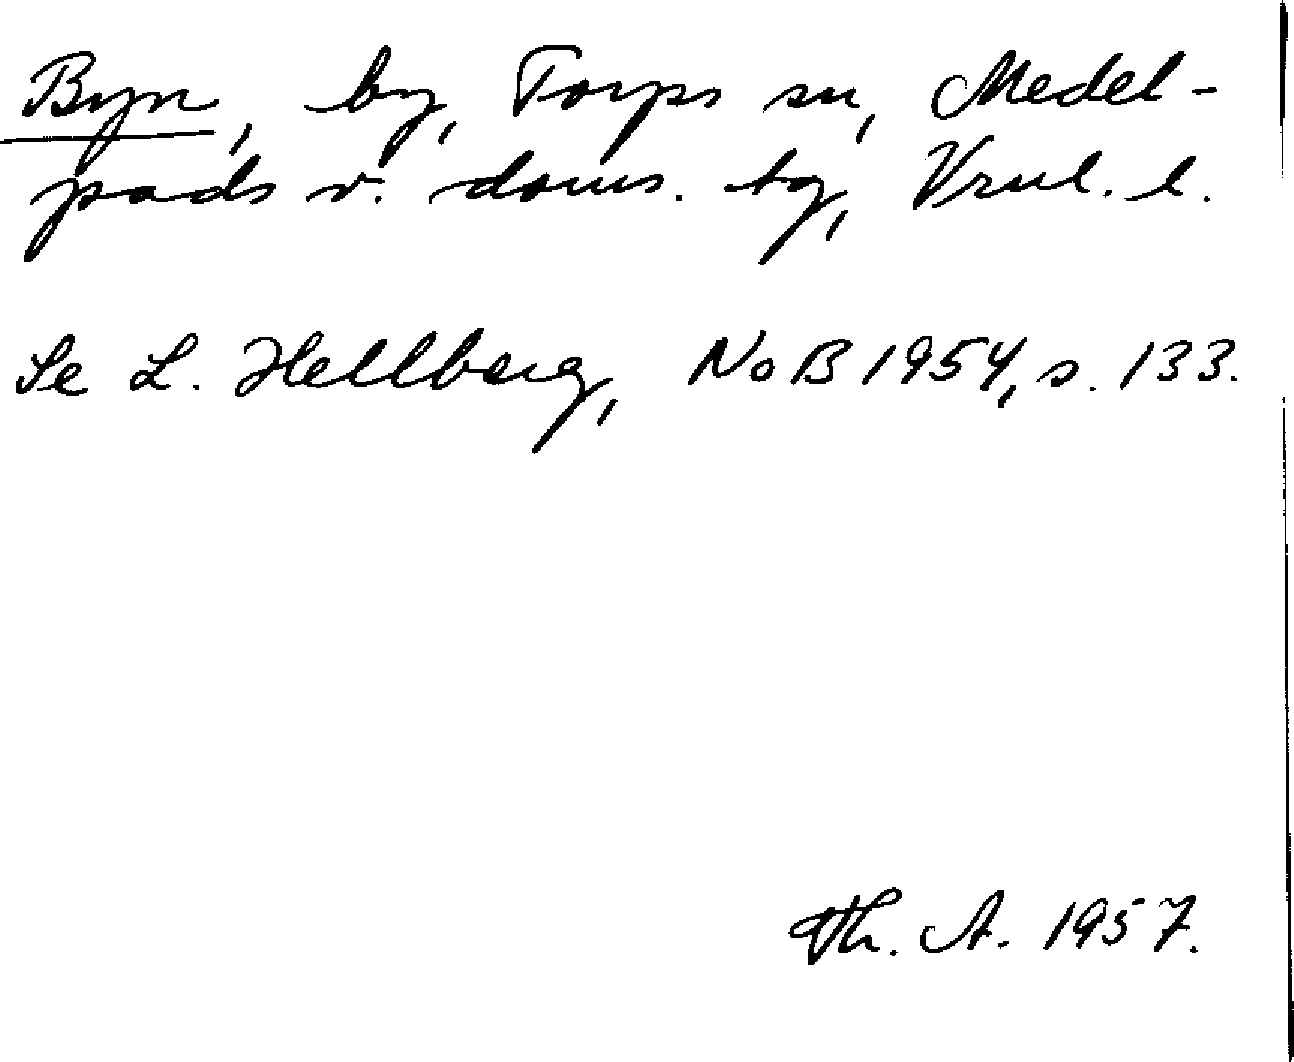 Byn, by, Torps sn, Medel-
pads v. doms. tg, Vrnl. l.
Se L. Hellberg, NoB 1954, s. 133.
Th. A. 1957.